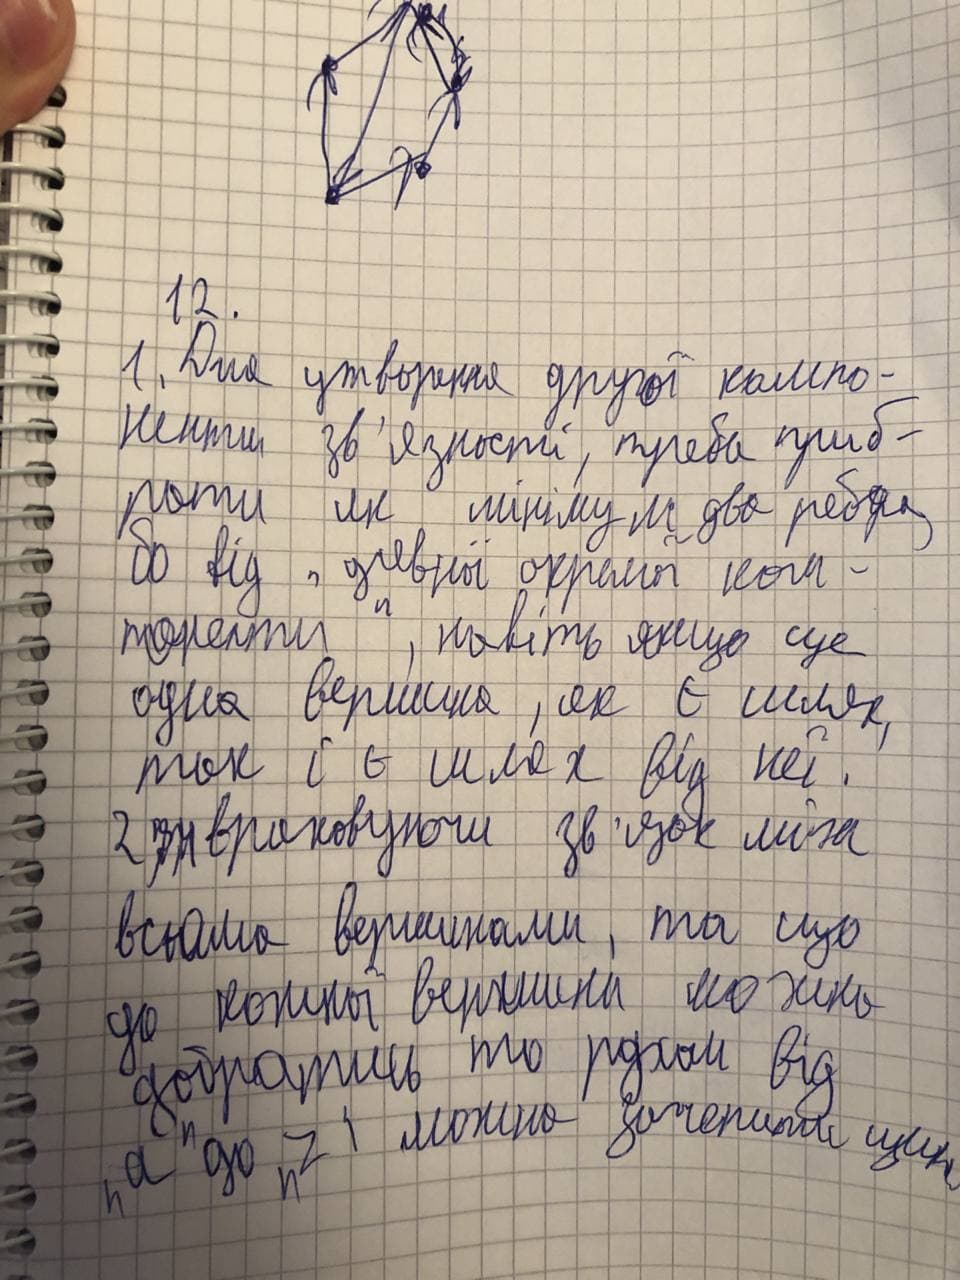 12.
1. Для утворення другої компо-
ненти зв'язності, треба приб-
рати як мінімум два ребра,
бо від „певної окремої ком-
поненти", навіть якщо це
одна вершина, як є шлях,
так і є шлях від неї.
2 враховуючи зв'язок між
всіма вершинами, та що
до кожної вершини можна
добратись то рухом від
„a" до „z" можна зачепити цик